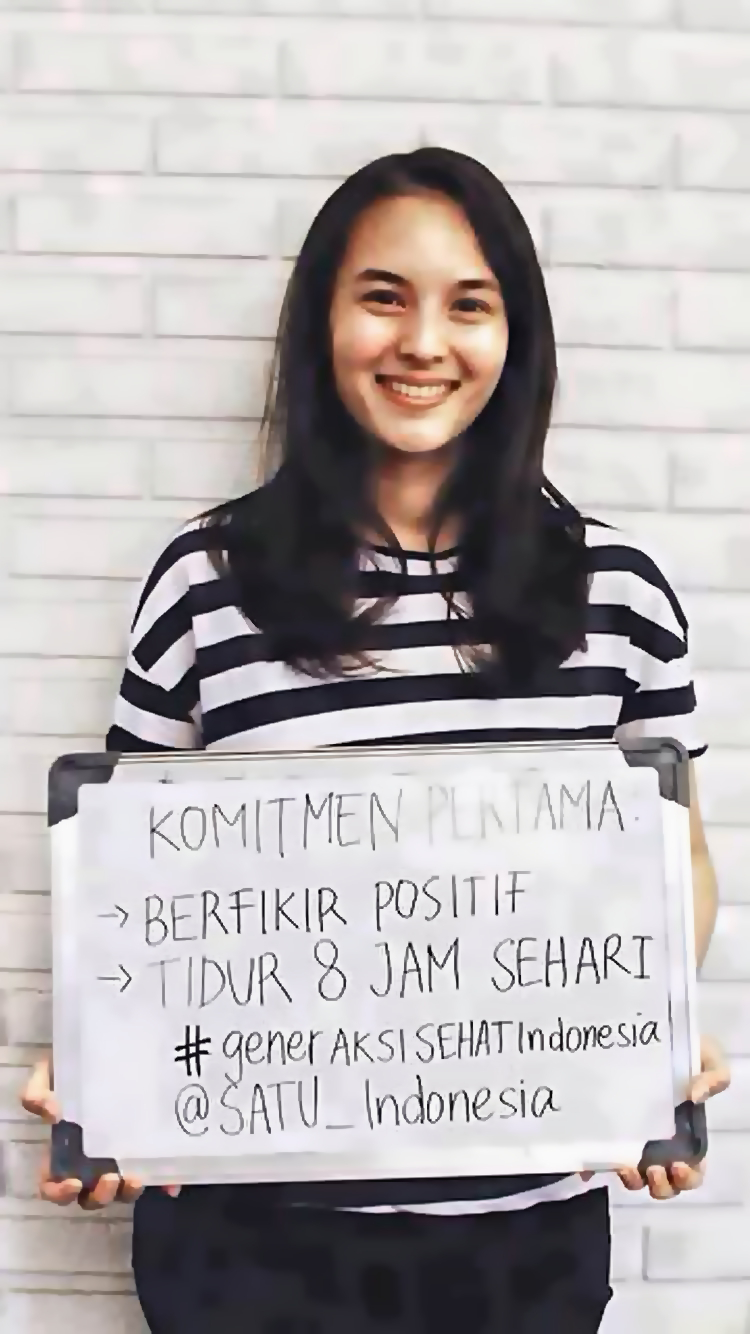 KOMITMEN PERTAMA:
→ BERFIKIR POSITIF
→ TIDUR 8 JAM SEHARI
#generAKSISEHATIndonesia
@SATU_Indonesia